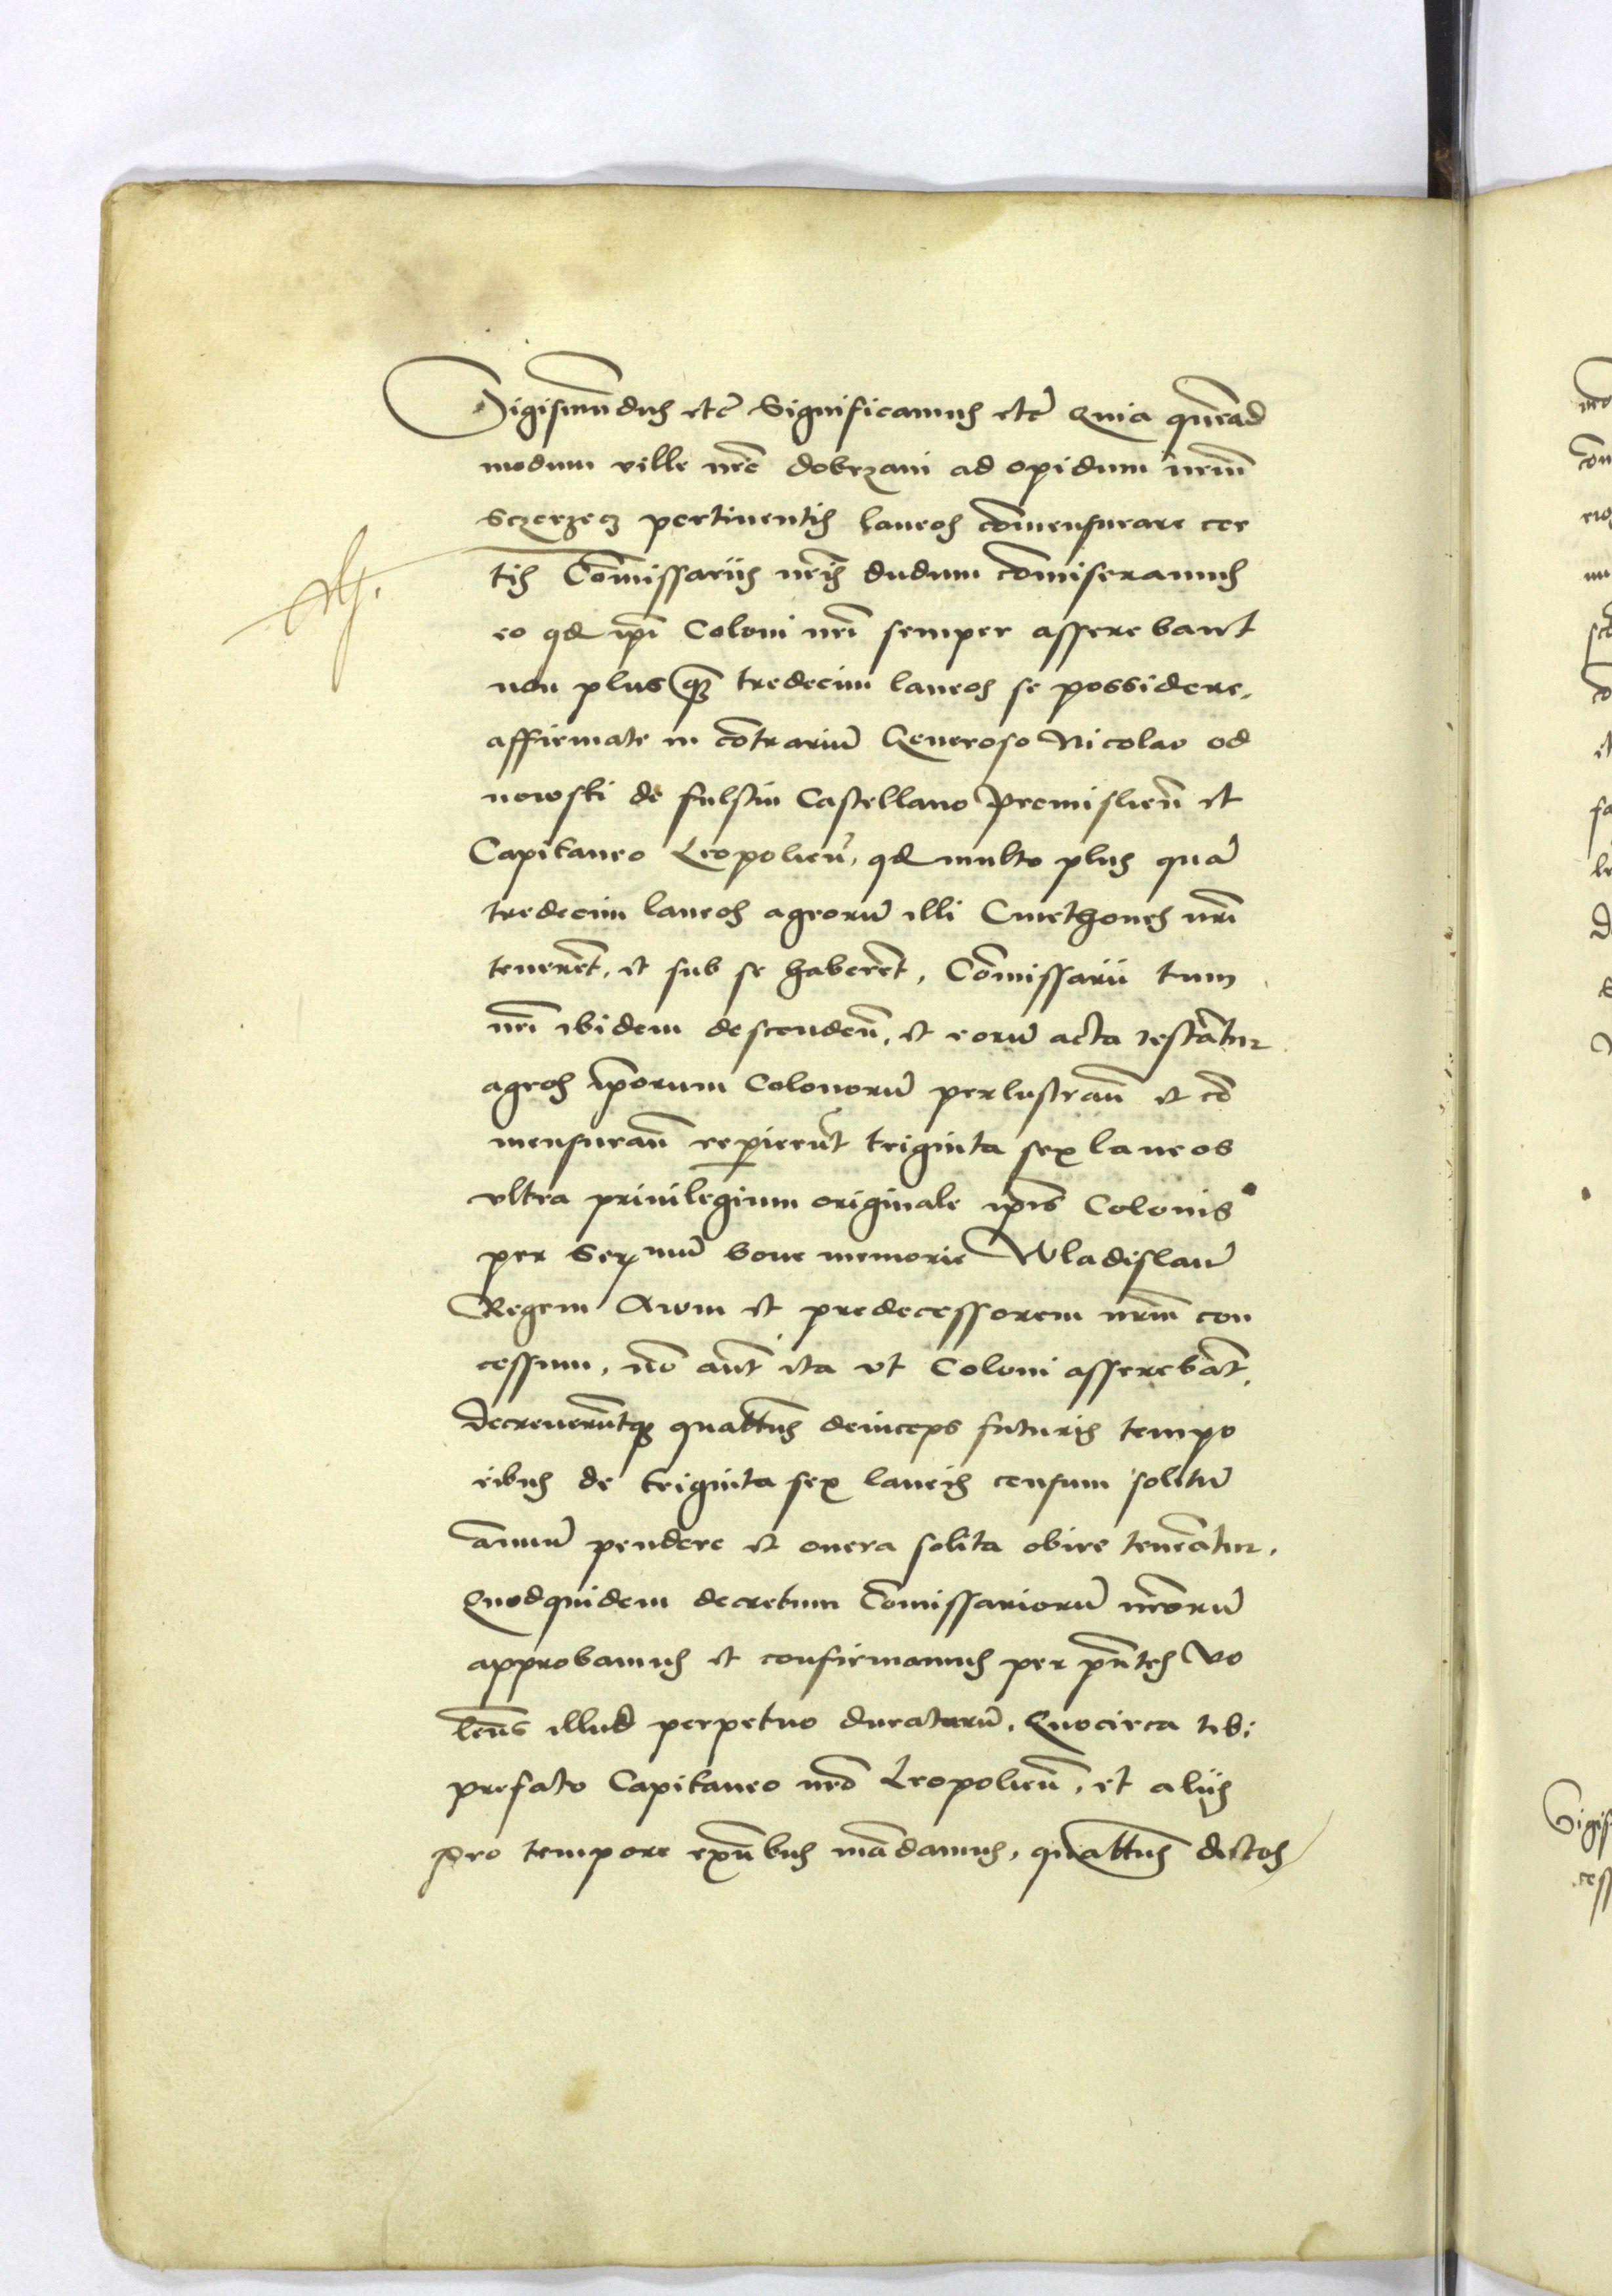 Sigismundus etc̄ Significamus etc̄ Quia quēad
modum ville nr̄e dobrzani ad opidum nr̄um
Sczerzecz pertinentis laneos cōmensurare cer
tis Cōmissariis nr̄is dudum cōmiseramus
eo qđ ip̄i Coloni nr̄i semper asserebant
non plus q̄ tredecim laneos se possidere,
affirmāte in cōtrariū Generoso Nicolao od
nowski de fulstin Castellano Premislień et
Capitaneo Leopolień, qđ multo plus quā
tredecim laneos agrorū illi Cmethones nr̄i
tenerēt, et sub se haberēt, Cōmissarii tum
nr̄i ibidem descendeń, et eorū acta testātur
agros ip̄orum Colonorū perlustrań et cō
mensurań repierūt triginta sex laneos
vltra priuilegium originale ip̄is Colonis
per Serm̄um bone memorie Wladislaū
Regem Auum et predecessorem nr̄um con
cessum, nō aūt ita vt Coloni asserebāt,
decreuerūtq3 quatt̄us deinceps futuris tempo
ribus de triginta sex laneis censum solitū
annuū pendere et onera solita obire teneātur.
Quodquidem decretum Cōmissariorū nr̄orū
approbamus et confirmamus per pn̄tes vo
len̄s illud perpetuo duraturū, Quocirca tibi
prefato Capitaneo nr̄o Leopolień, et aliis
pro tempore exn̄bus mādamus, quatt̄us dictos